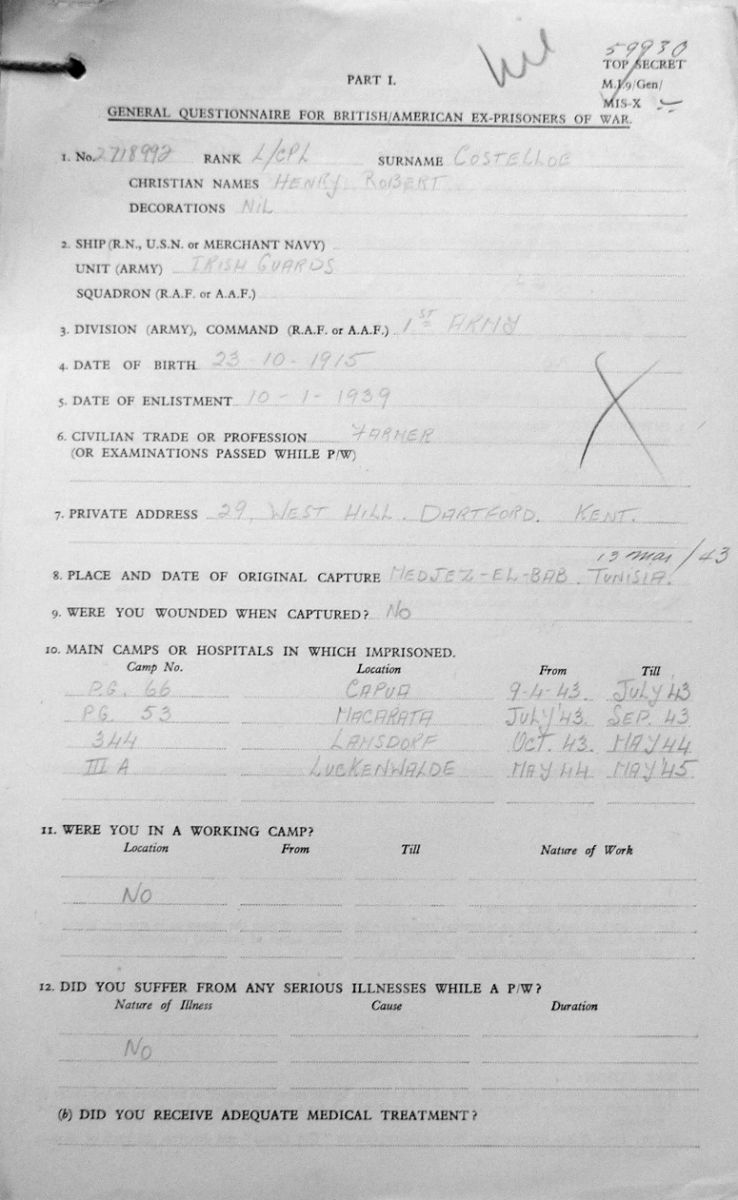 nil
59930
TOP SECRET
PART I.
M.I.9/Gen/
MIS-X
GENERAL QUESTIONNAIRE FOR BRITISH/AMERICAN EX-PRISONERS OF WAR.
1. No. 2718992 RANK L/CPL SURNAME COSTELLOE
CHRISTIAN NAMES HENRY ROBERT
DECORATIONS NIL
2. SHIP (R.N., U.S.N. or MERCHANT NAVY)
UNIT (ARMY) IRISH GUARDS
SQUADRON (R.A.F. or A.A.F.)
3. DIVISION (ARMY), COMMAND (R.A.F. or A.A.F.) 1ST ARMY
4. DATE OF BIRTH 23-10-1915
5. DATE OF ENLISTMENT 10-1-1939
6. CIVILIAN TRADE OR PROFESSION FARMER
(OR EXAMINATIONS PASSED WHILE P/W)
7. PRIVATE ADDRESS 29, WEST HILL. DARTFORD. KENT.
13 Mar/43
8. PLACE AND DATE OF ORIGINAL CAPTURE MEDJEZ-EL-BAB. TUNISIA.
9. WERE YOU WOUNDED WHEN CAPTURED? NO
10. MAIN CAMPS OR HOSPITALS IN WHICH IMPRISONED.
Camp No. Location From Till
P.G. 66 CAPUA 9-4-43. JULY '43
P.G. 53 MACARATA JULY '43. SEP. 43
344 LAMSDORF OCT. 43. MAY 44
III A LUCKENWALDE MAY 44 MAY '45
11. WERE YOU IN A WORKING CAMP?
Location From Till Nature of Work
NO
12. DID YOU SUFFER FROM ANY SERIOUS ILLNESSES WHILE A P/W?
Nature of Illness Cause Duration
NO
(b) DID YOU RECEIVE ADEQUATE MEDICAL TREATMENT?